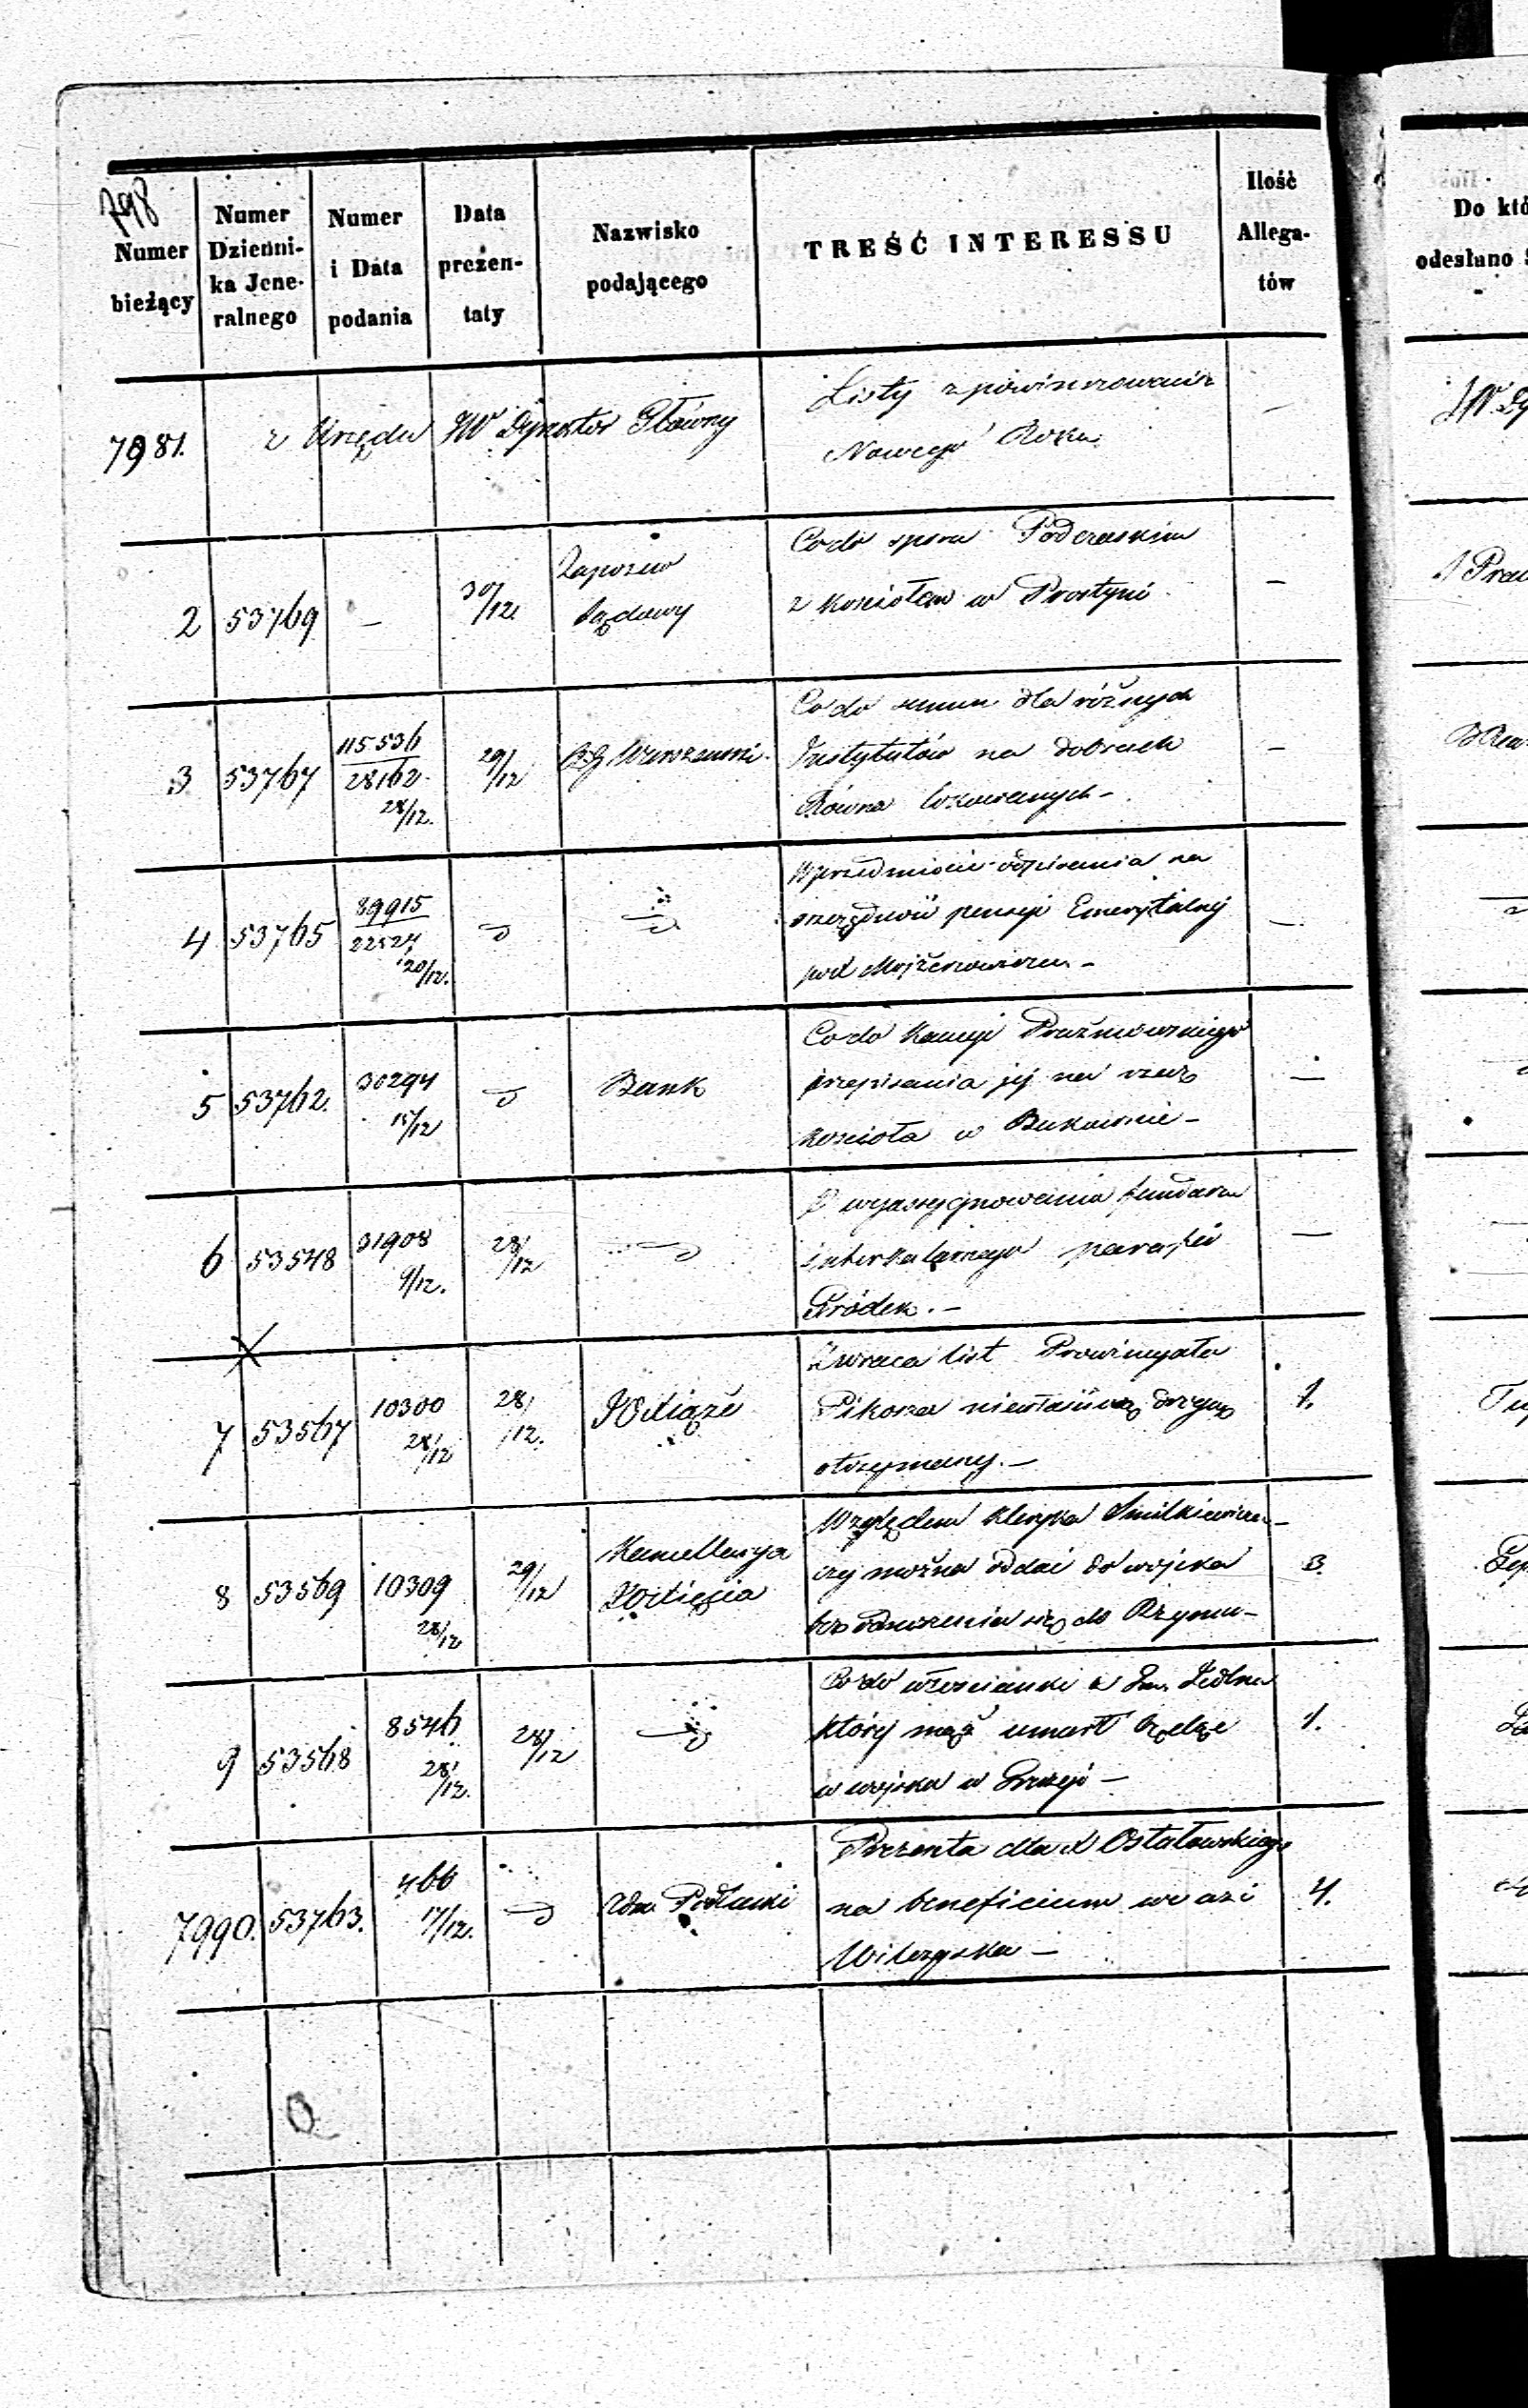 798
Numer
bieżący
Numer
Dzienni-
ka Jene-
ralnego
Numer
i Data
podania
Data
prezen-
taty
Nazwisko
podającego
TREŚĆ INTERESSU
Ilość
Allega-
tów
Do któ
odesłano
7981. z Urzędu JW Dyrektor Główny
Listy z powinszowania
Nowego Roku
2 53769 - 30/12.
Zapozew
Sądowy
Co do sporu Podczaskim
z kościołem w Prostyni -
3 53767
115536
28162
28/12.
29/12
R.G. Warszawski
Co do summ dla różnych
Instytutów na dobrach
Równa lokowanych - -
4 53765
89915
22527
20/12.
W przedmiocie odpisania na
pensyi Emerytalnej
pod
5 53762.
30294
15/12
Bank
Co do kaucyi Prażmowskiego
przepisania jej na rzecz
kościoła w Bukownie -
6 53548
31908
9/12.
28/12
wyassygnowania funduszu
interkalarnego parafii
Gródek. -
7 53567
10300
28/12
28/12.
X Wiąże
Zwraca list Prowincyała
Pikora niewłaściwą drogą
otrzymany. -
1.
8 53569
10309
28/12
29/12
Kancellarya
Względem kleryka Smilkiewicza -
czy można oddać do wojska
bez odnoszenia się do Rzymu -
3.
9 53568
8546
28/12.
28/12
Co do włościanki z Gm. Jedlna
której mąż umarł będąc
w wojsku w Grecyi -
1.
7990. 53763.
466
17/12.
Adm. Podlaski
Prezenta dla X Ostałowskiego
na beneficium we wsi
Wilczyska -
4.